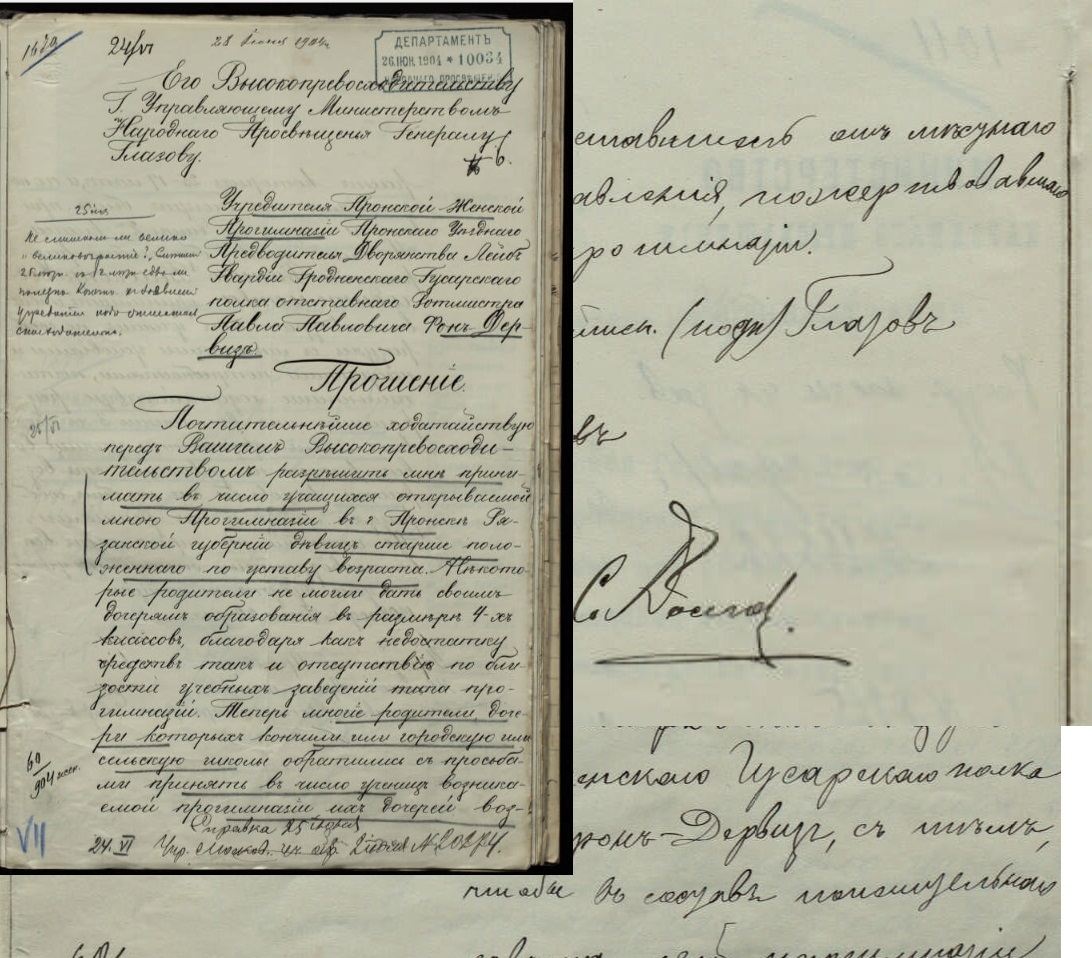 24/VI
28 Июня 1904 г.
ДЕПАРТАМЕНТЪ
26 ІЮН. 1904 * 10034
НАРОДНАГО ПРОСВѢЩЕНІЯ
Его Высокопревосходительству
Г. Управляющему Министерствомъ
Народнаго Просвѣщенія Генералу
Глазову.
Учредителя Пронской Женской
Прогимназіи Пронскаго Уѣзднаго
Предводителя Дворянства Лейбъ
Гвардіи Гродненскаго Гусарскаго
полка отставнаго Ротмистра
Павла Павловича Фонъ-Дер-
визъ.
Не слишкомъ ли велико
Прошеніе.
25/VI
Почтительнѣйше ходатайствую
передъ Вашимъ Высокопревосходи-
тельствомъ разрѣшить мнѣ прини-
мать въ число учащихся открываемой
мною Прогимназіи въ г. Пронскѣ Ря-
занской губерніи дѣвицъ старше поло-
женнаго по уставу возраста. Нѣкото-
рые родители не могли дать своимъ
дочерямъ образованія въ размѣрѣ 4-хъ
классовъ, благодаря какъ недостатку
средствъ такъ и отсутствію по бли-
зости учебныхъ заведеній типа про-
гимназій. Теперь многіе родители, доче-
ри которыхъ кончили или городскую или
сельскую школы обратились съ просьба-
ми принять въ число ученицъ возника-
емой прогимназіи ихъ дочерей воз-
VII
Справка 25 Іюня
24. VI
ставителей отъ мѣстнаго
авленія, пожертвовавшаго
рогимназіи.
(подп) Глазовъ
въ
енскаго Гусарскаго полка
фонъ-Дервизъ, съ тѣмъ,
чтобы въ составъ попечительнаго